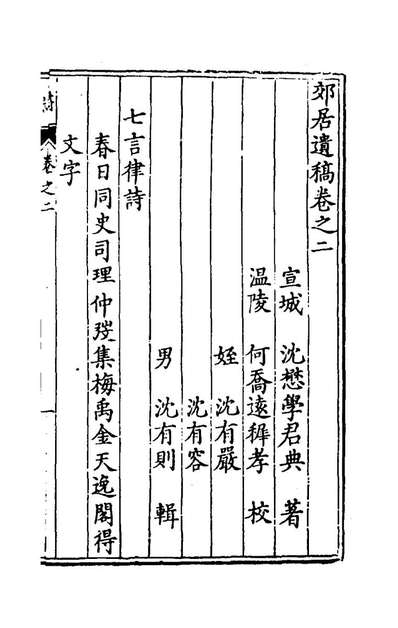 郊居遺稿卷之二
宣城　沈懋學君典　著
温陵　何喬遠穉孝　校
姪　沈有嚴
沈有容
男　沈有則　輯
七言律詩
春日同史司理仲弢集梅禹金天逸閣得
文字
詩　卷之二　一